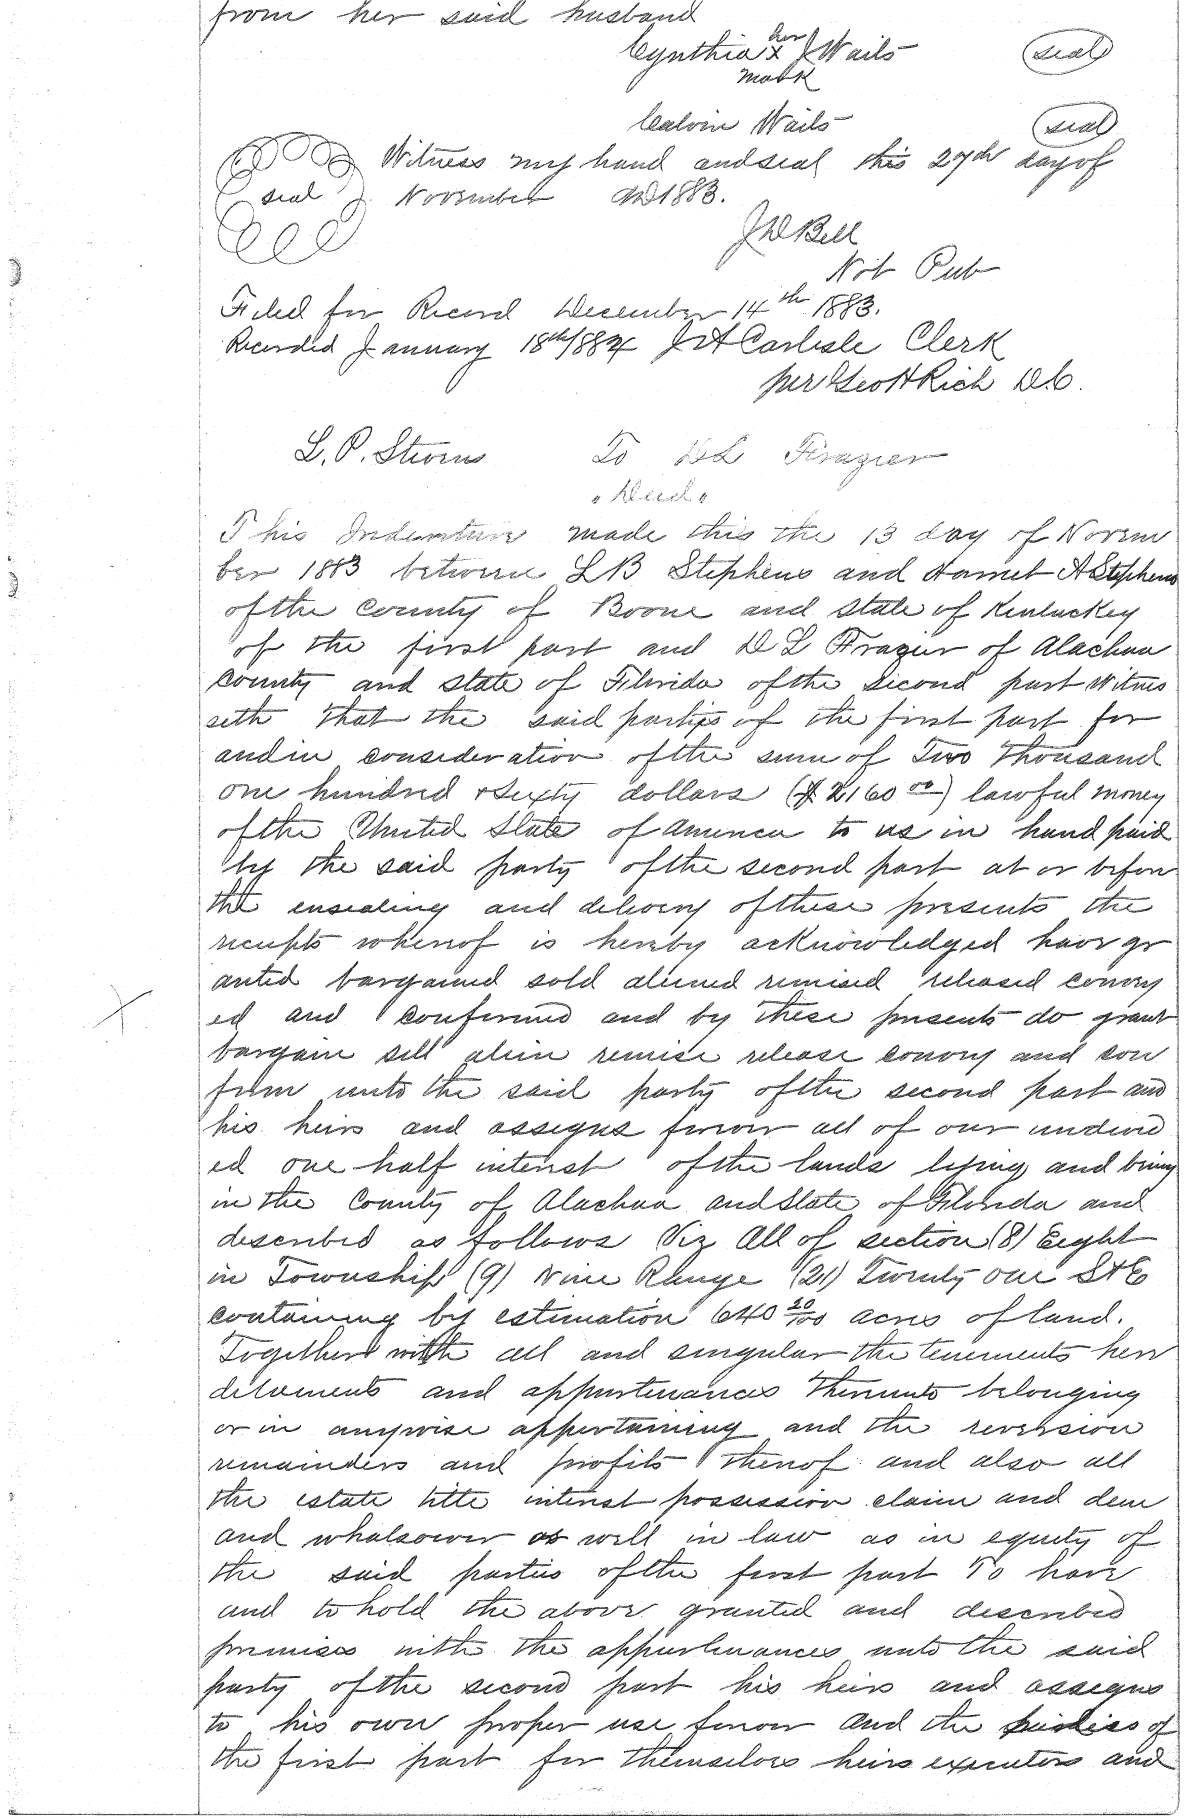 from her said husband
her
Cynthia x J Wails seal
mark
Calvin Wails seal
Witness my hand and seal this 27th day of
seal November AD 1883.
J D Bell
Not Pub
Filed for Record December 14th 1883.
Recorded January 18th/884 J A Carlisle Clerk
per Geo H Rich D.C.
L. P. Stevens To D L Frazier
"Deed"
This Indenture made this the 13 day of Novem
ber 1883 between L B Stephens and Harriet A Stephens
of the county of Boone and state of Kentuckey
of the first part and D L Frazier of Alachua
county and state of Florida of the second part Witnes
seth that the said parties of the first part for
and in consideration of the sum of Two thousand
one hundred & Sixty dollars ($2160 00) lawful money
of the United State of America to us in hand paid
by the said party of the second part at or before
the ensealing and delivery of these presents the
receipts whereof is hereby acknowledged have gr
anted bargained sold aliened remised released convey
ed and confirmed and by these presents do grant
bargain sell alien remise release convey and con
firm unto the said party of the second part and
his heirs and assigns forever all of our undivid
ed one half interest of the lands lying and being
in the County of Alachua and State of Florida and
described as follows Viz All of section (8) Eight
in Township (9) Nine Range (21) Twenty one S & E
containing by estimation 640 20/100 acres of land.
Together with all and singular the tenements here
ditaments and appurtenances thereunto belonging
or in anywise appertaining and the reversion
remainders and profits thereof and also all
the estate title interest possession claim and dem
and whatsoever as well in law as in equity of
the said parties of the first part To have
and to hold the above granted and described
premises with the appurtenances unto the said
party of the second part his heirs and assigns
to his own proper use forever and the parties of
the first part for themselves heirs executors and